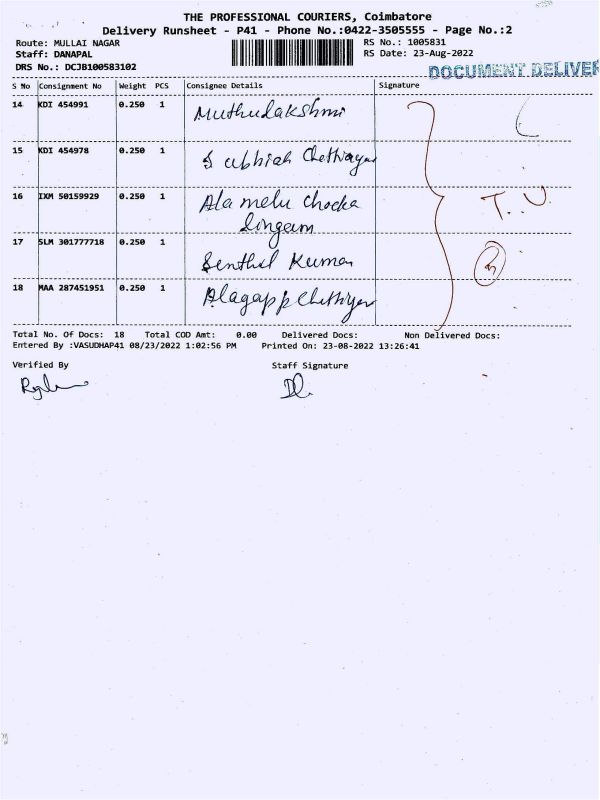 THE PROFESSIONAL COURIERS, Coimbatore
Delivery Runsheet - P41 - Phone No.:0422-3505555 - Page No.:2
Route: MULLAI NAGAR RS No.: 1005831
Staff: DANAPAL RS Date: 23-Aug-2022
DRS No.: DCJB100583102 DOCUMENT DELIVER
S No Consignment No Weight PCS Consignee Details Signature
14 KDI 454991 0.250 1 Muthulakshmi
15 KDI 454978 0.250 1 Subbiah Chettiyar
16 IXM 50159929 0.250 1 Alamelu Chocka
lingam
17 SLM 301777718 0.250 1 Senthil Kumar
18 MAA 287451951 0.250 1 Alagapp Chettiyar
Total No. Of Docs: 18 Total COD Amt: 0.00 Delivered Docs: Non Delivered Docs:
Entered By :VASUDHAP41 08/23/2022 1:02:56 PM Printed On: 23-08-2022 13:26:41
Verified By Staff Signature